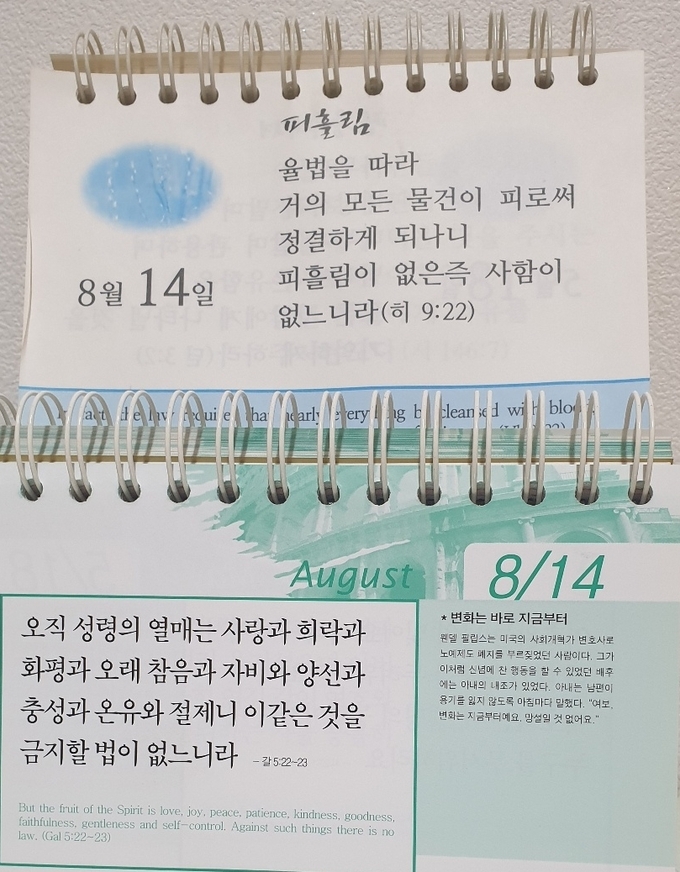 피흘림
율법을 따라
거의 모든 물건이 피로써
정결하게 되나니
피흘림이 없은즉 사함이
없느니라(히 9:22)
8월 14일
fact, the law requires that nearly everything be cleansed with blood,
August
8/14
오직 성령의 열매는 사랑과 희락과
화평과 오래 참음과 자비와 양선과
충성과 온유와 절제니 이같은 것을
금지할 법이 없느니라 - 갈 5:22~23
But the fruit of the Spirit is love, joy, peace, patience, kindness, goodness,
faithfulness, gentleness and self-control. Against such things there is no
law. (Gal 5:22~23)
★ 변화는 바로 지금부터
웬델 필립스는 미국의 사회개혁가 변호사로
노예제도 폐지를 부르짖었던 사람이다. 그가
이처럼 신념에 찬 행동을 할 수 있었던 배후
에는 아내의 내조가 있었다. 아내는 남편이
용기를 잃지 않도록 아침마다 말했다. "여보,
변화는 지금부터예요. 망설일 것 없어요."